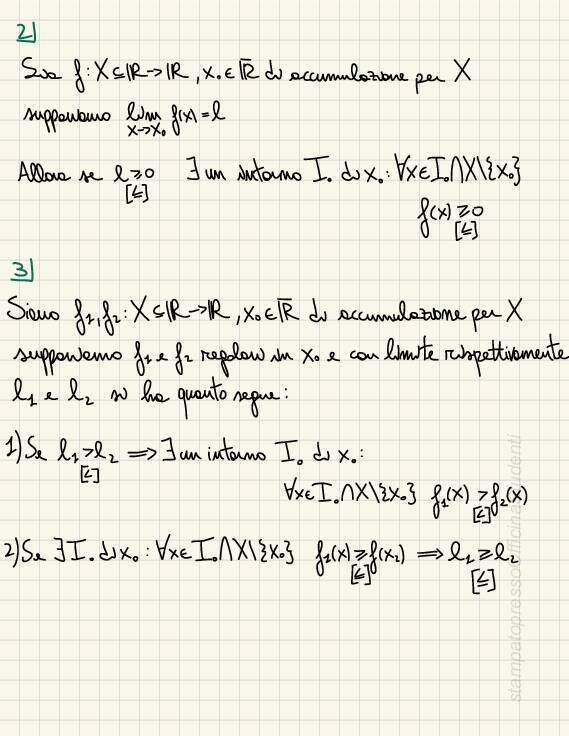 2]
Sia f: X ⊆ ℝ → ℝ, x₀ ∈ ℝ̅ di accumulazione per X
supponiamo lim f(x) = l
x→x₀
Allora se l ≥ 0 ∃ un intorno I₀ di x₀: ∀x ∈ I₀ ∩ X \ {x₀}
[≤]
f(x) ≥ 0
[≤]
3]
Siano f₁, f₂: X ⊆ ℝ → ℝ, x₀ ∈ ℝ̅ di accumulazione per X
supponiamo f₁ e f₂ regolari in x₀ e con limite rispettivamente
l₁ e l₂ si ha quanto segue:
1) Se l₁ > l₂ ⟹ ∃ un intorno I₀ di x₀:
[≤]
∀x ∈ I₀ ∩ X \ {x₀} f₁(x) > f₂(x)
[≤]
2) Se ∃ I₀ di x₀: ∀x ∈ I₀ ∩ X \ {x₀} f₁(x) ≥ f(x₂) ⟹ l₁ ≥ l₂
[≤] [≤]
stampatopressoofficinastudenti